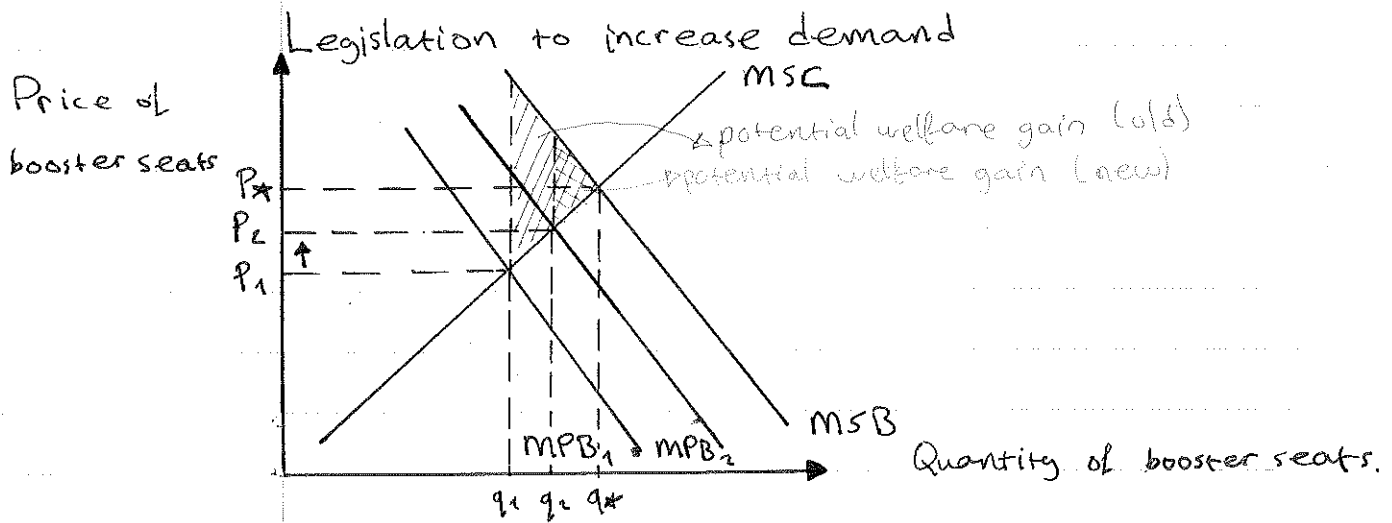 Legislation to increase demand
Price of
booster seats
MSC
potential welfare gain (old)
potential welfare gain (new)
P*
P2
P1
MSB
MPB1
MPB2
Quantity of booster seats.
q1 q2 q*